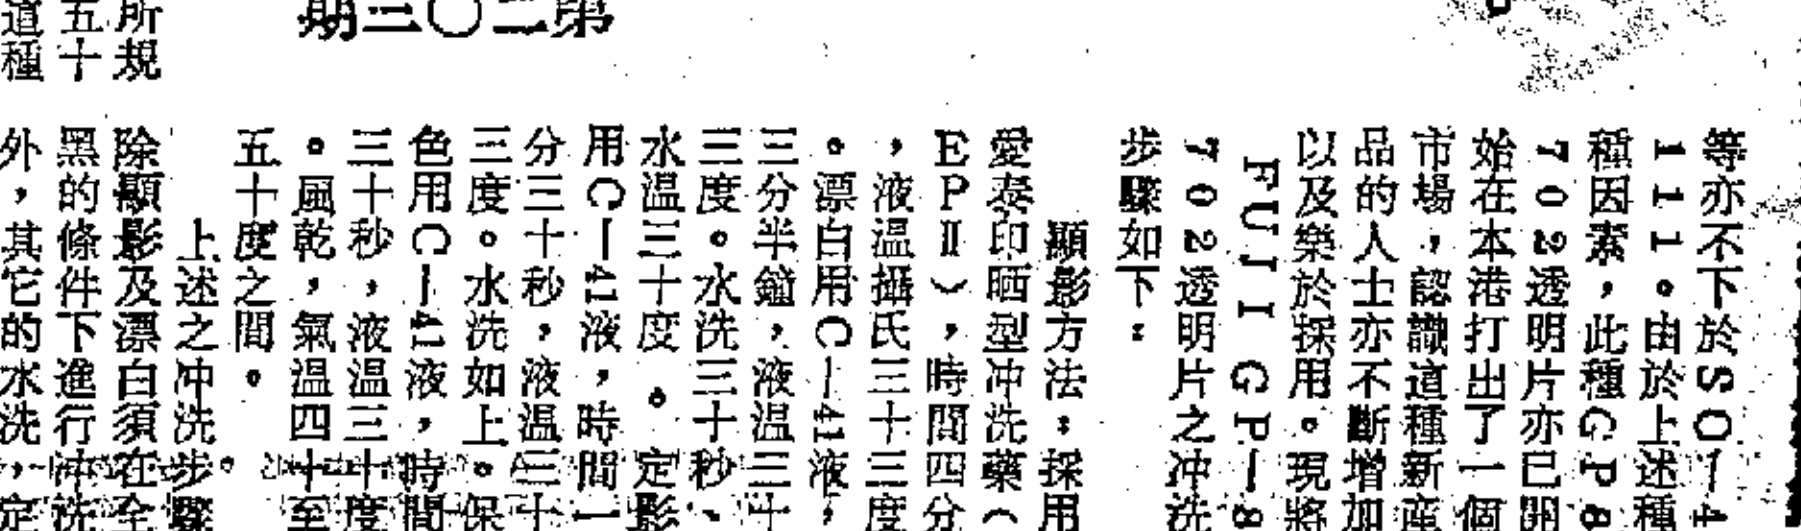 等亦不下於SO—4
111。由於上述種
種因素，此種GP8
702透明片亦已開
始在本港打出了一個
市場，認識這種新産
品的人士亦不斷增加
以及樂於採用。現將
FUJI GP—8
702透明片之冲洗
步驟如下：
顯影方法：採用
愛泰印晒型冲洗藥（
EPⅡ），時間四分
，液温攝氏三十三度
。漂白用C—41液，
三分半鐘，液温三十
三度。水洗三十秒、
水温三十度。定影
用C—41液，時間一
分三十秒，液温三十
三度。水洗如上。保
色用C—41液，時間
三十秒，液温三十度
。風乾，氣温四十至
五十度之間。
上述之冲洗步驟
除顯影及漂白須在全
黑的條件下進行冲洗
外，其它的水洗，定
第二〇三期
所規
五十
道種